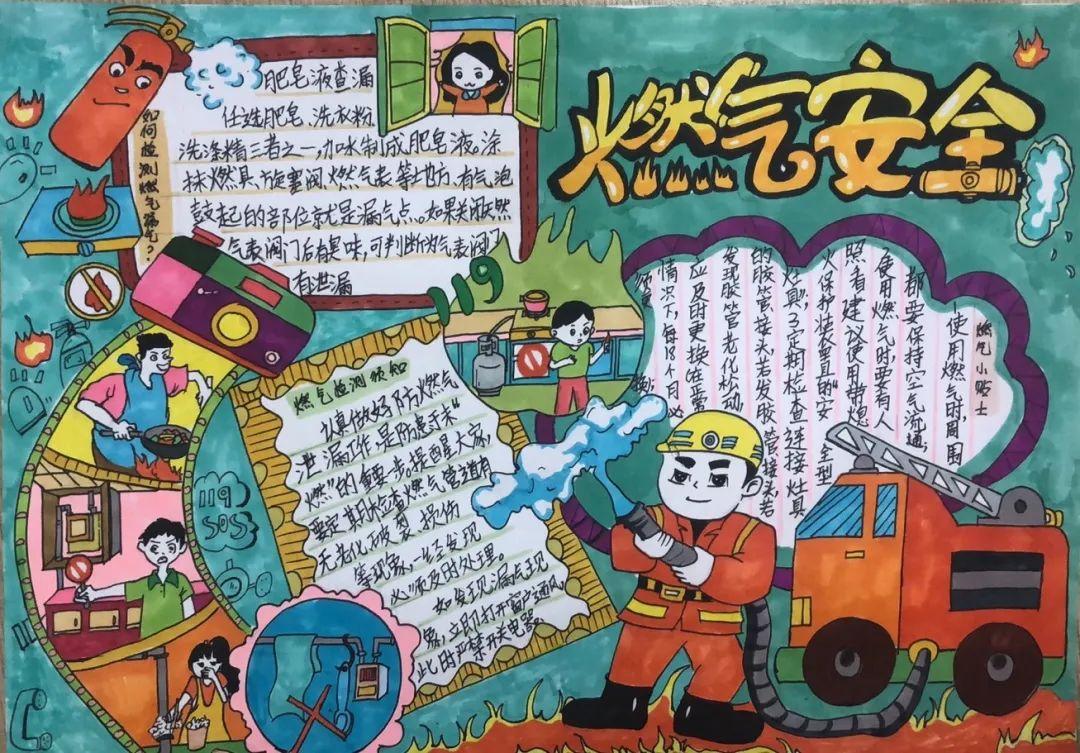 燃气安全
如何检测燃气漏气？
肥皂液查漏
任选肥皂、洗衣粉
洗涤精三者之一，加水制成肥皂液，涂
抹燃具、旋塞阀、燃气表等地方，有气泡
鼓起的部位就是漏气点。如果关闭燃
气表阀门后有臭味，可判断为气表阀门
有泄漏
119
燃气检测须知
认真做好防燃气
泄漏工作，是防患于未“
燃”的重要一步。提醒大家，
要定期检查燃气管道有
无老化、破裂、损伤
等现象，一经发现
必须及时处理。
如发现漏点现
象，立即打开窗户通风，
此时严禁开关电器。
燃气小贴士
使用燃气时，周围
都要保持空气流通，
使用燃气时要有人
照看，建议使用带熄
火保护装置的“安全型
灶具”，定期检查连接灶具
的胶管、接头，若发胶管接头，若
发现胶管老化松动
应及时更换，在正常
情况下，每18个月必
须更换
119
SOS